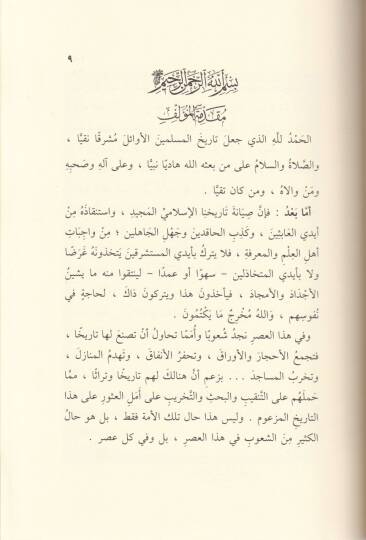 ٩
بسم الله الرحمن الرحيم
مقدمة المؤلف
الحَمْدُ للَّهِ الذي جعلَ تاريخَ المسلمينَ الأوائلَ مُشرقًا نقيًّا ،
والصَّلاةُ والسلامُ على من بعثه الله هاديًا نبيًّا ، وعلى آلهِ وصَحبِهِ
ومَنْ والاهُ ، ومن كان تقيًّا .
أمَّا بَعْدُ : فإنَّ صِيَانَةَ تَاريخنا الإسلاميِّ المَجيدِ ، واستنقاذَهُ مِنْ
أيدي العَابثينَ ، وكَذِبِ الحاقدينَ وجَهْلِ الجَاهلين ؛ مِنْ واجِبَاتِ
أهلِ العِلْمِ والمعرفةِ ، فلا يتركُ بأيدي المستشرقينَ يَتخذونَهُ غَرَضًا
ولا بأيدي المتخاذلين – سهوًا أو عمدًا – لينتقوا منه ما يشينُ
الأجْدَادَ والأمجادَ ، فيأخذونَ هذا ويتركونَ ذاكَ ، لحاجةٍ في
نُفوسِهم ، وَاللهُ مُخْرِجٌ مَا يَكْتُمُونَ .
وفي هذا العصرِ نجدُ شُعوبًا وأُممًا تحاولُ أنْ تصنعَ لها تاريخًا ،
فتجمعُ الأحجارَ والأوراقَ ، وتحفرُ الأنفاقَ ، وتَهدمُ المنازلَ ،
وتخربُ المساجدَ ... بزعمِ أنْ هنالكَ لهم تاريخًا وتراثًا ، ممَّا
حَملَهُم على التَّنقيبِ والبحثِ والتَّخريبِ على أَملِ العثورِ على هذا
التاريخِ المزعومِ . وليس هذا حال تلك الأمة فقط ، بل هو حالُ
الكثيرِ مِنَ الشعوبِ في هذا العصرِ ، بل وفي كل عصر .